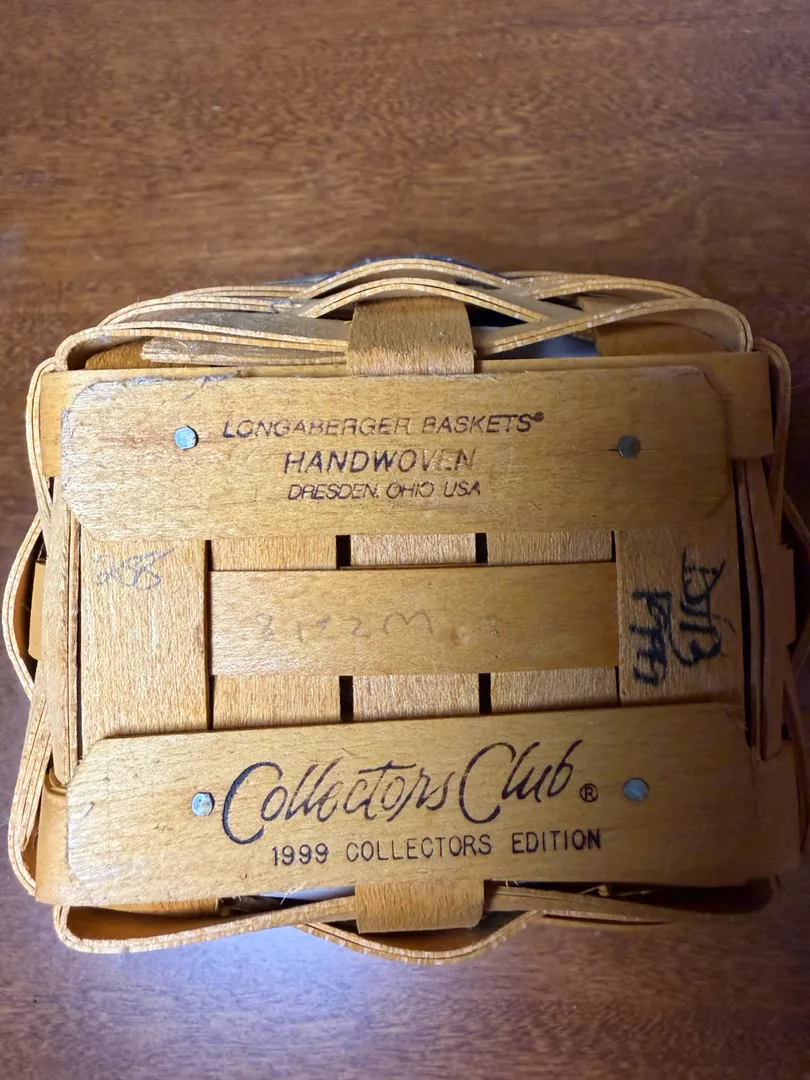 LONGABERGER BASKETS®
HANDWOVEN
DRESDEN, OHIO USA
1999
Collectors Club®
1999 COLLECTORS EDITION